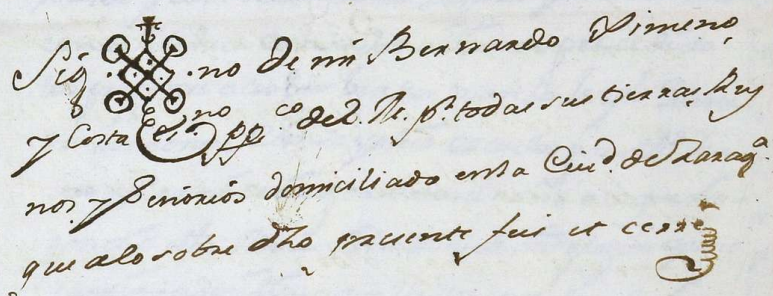 Sig no de mi Bernardo Ximeno,
y Costa Es.no pp.co del R. pr. todas sus tierras, Rey
nos, y Señoríos domiciliado en la Ciud. de Zarag.a
que a lo sobre dho presente fui et cerre